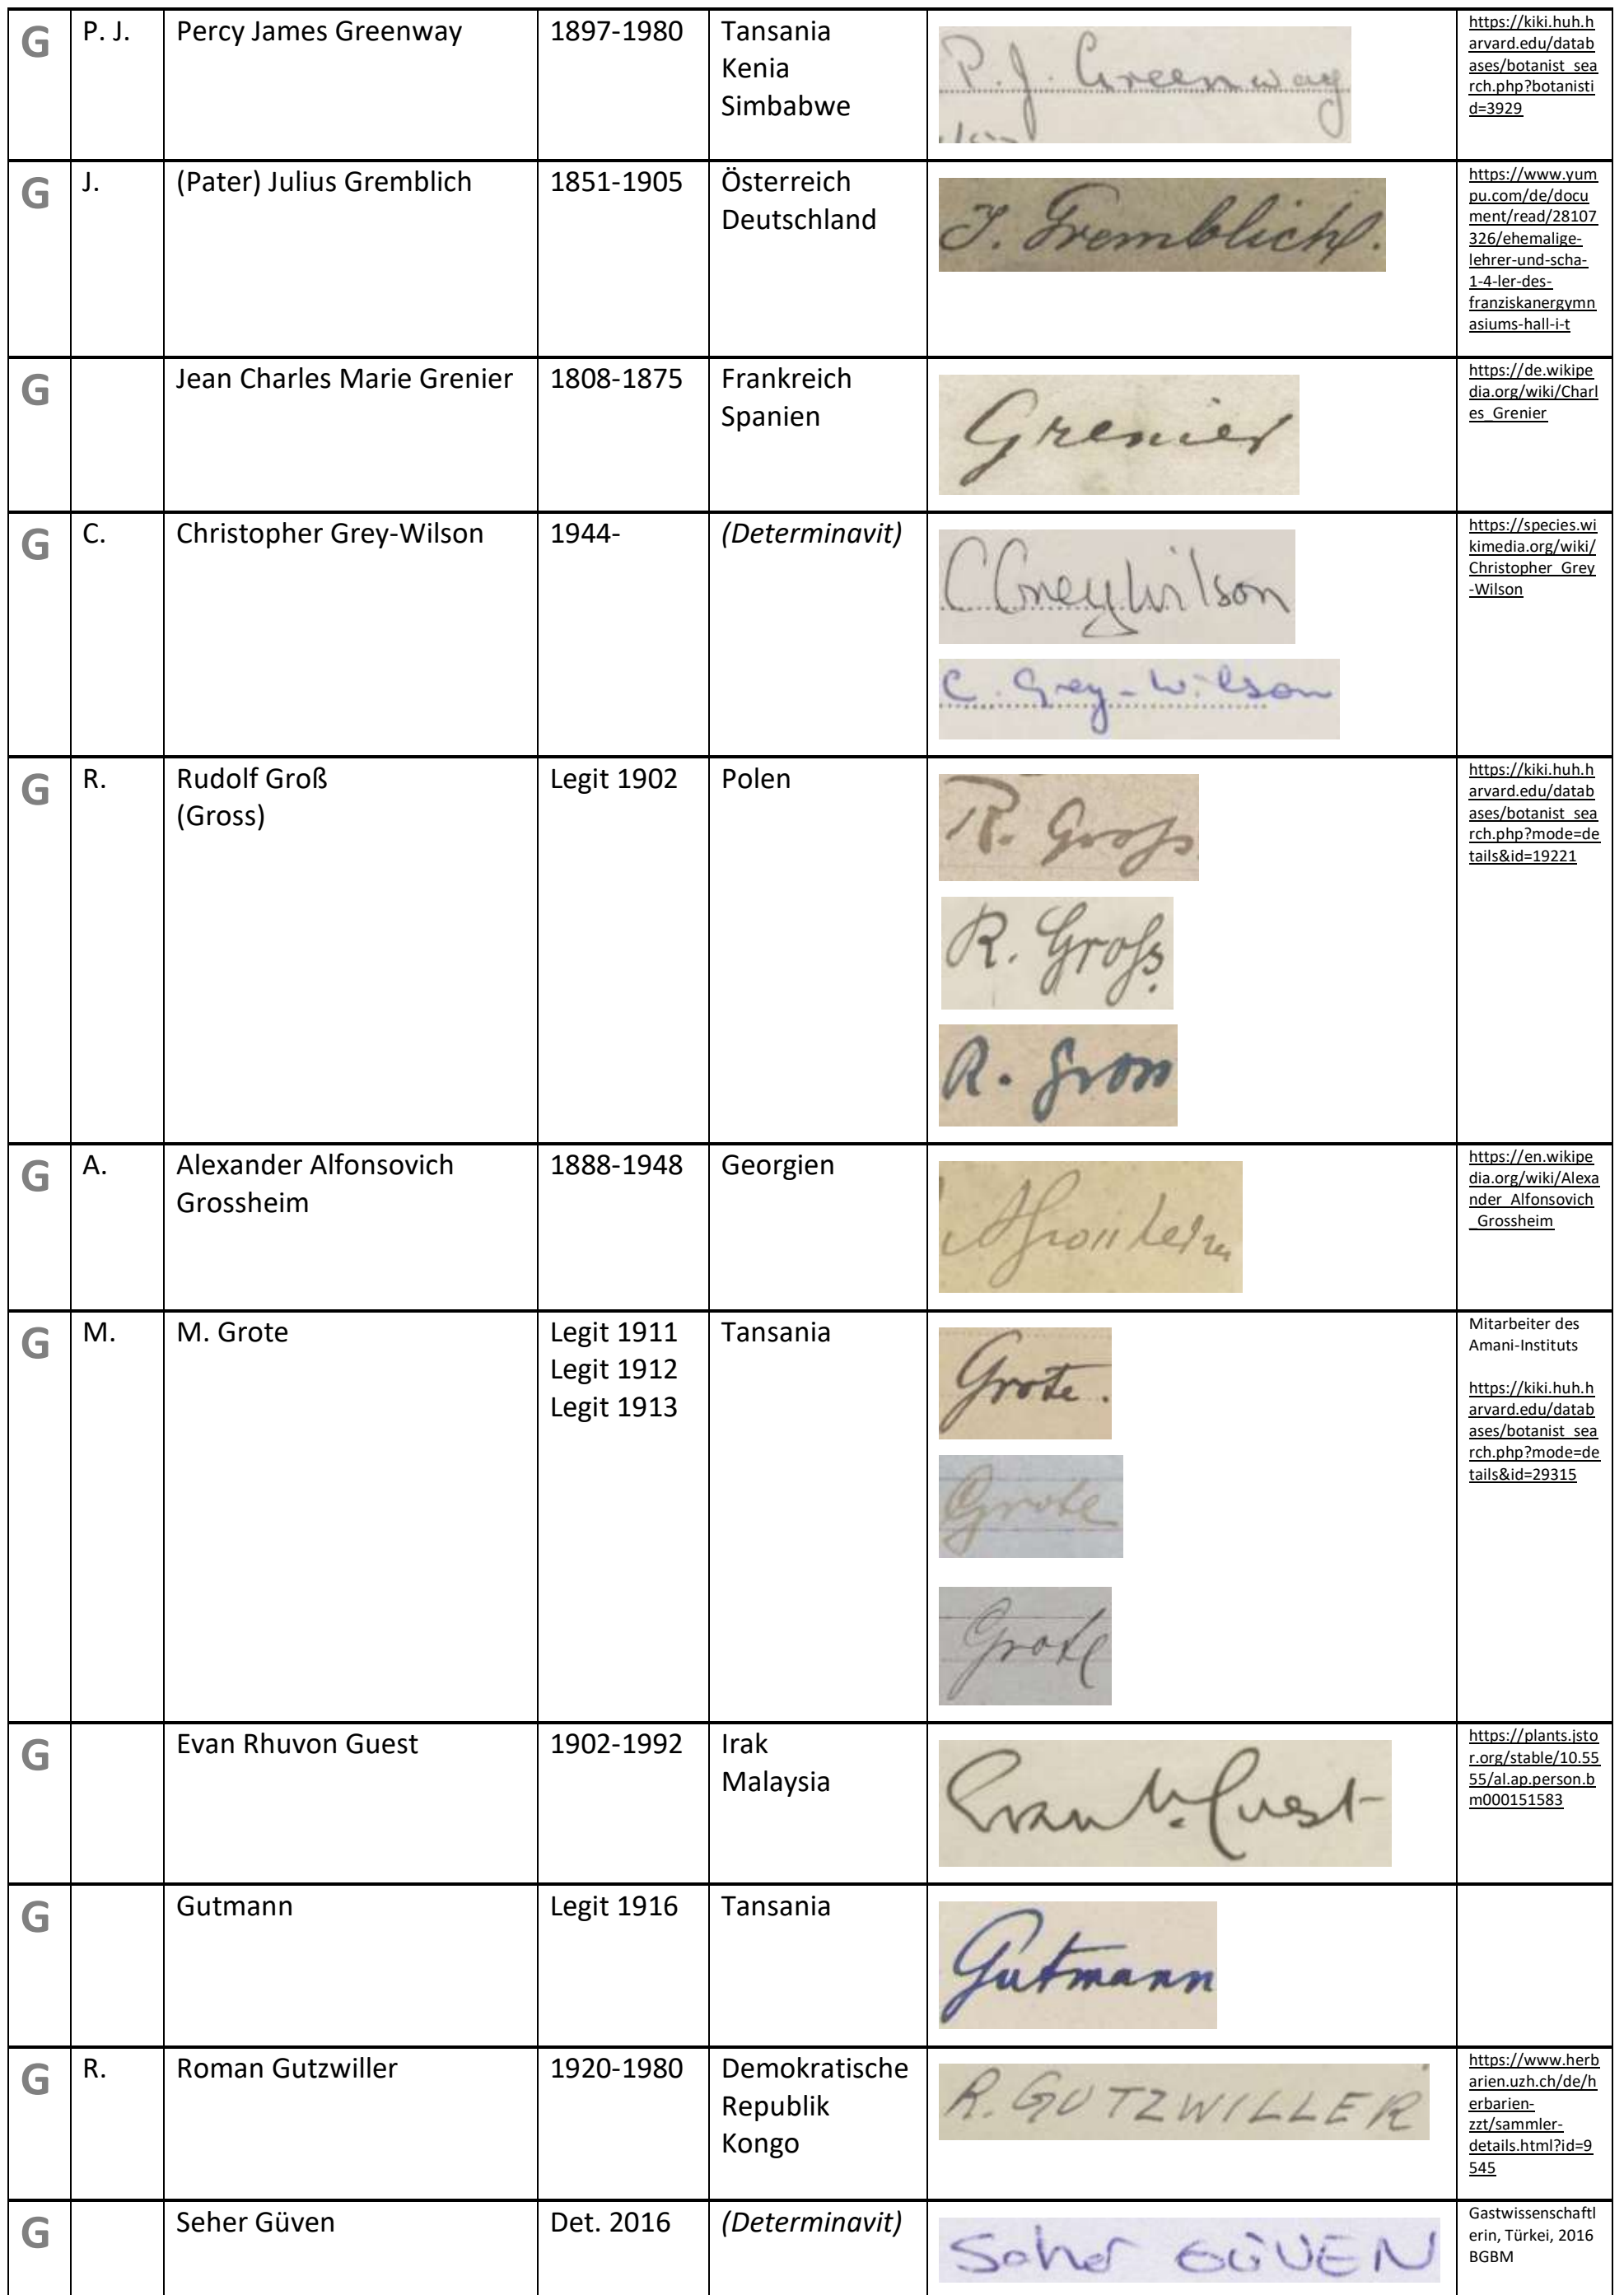 G P. J. Percy James Greenway 1897-1980 Tansania
Kenia
Simbabwe
P. J. Greenway
https://kiki.huh.h
arvard.edu/datab
ases/botanist_sea
rch.php?botanisti
d=3929
G J. (Pater) Julius Gremblich 1851-1905 Österreich
Deutschland
J. Gremblich.
https://www.yum
pu.com/de/docu
ment/read/28107
326/ehemalige-
lehrer-und-scha-
1-4-ler-des-
franziskanergymn
asiums-hall-i-t
G Jean Charles Marie Grenier 1808-1875 Frankreich
Spanien
Grenier
https://de.wikipe
dia.org/wiki/Charl
es_Grenier
G C. Christopher Grey-Wilson 1944- (Determinavit)
C Grey Wilson
C. Grey-Wilson
https://species.wi
kimedia.org/wiki/
Christopher_Grey
-Wilson
G R. Rudolf Groß Legit 1902 Polen
(Gross)
R. Groß
R. Groß.
R. Gross
https://kiki.huh.h
arvard.edu/datab
ases/botanist_sea
rch.php?mode=de
tails&id=19221
G A. Alexander Alfonsovich 1888-1948 Georgien
Grossheim
AGrossheim
https://en.wikipe
dia.org/wiki/Alexa
nder_Alfonsovich
_Grossheim
G M. M. Grote Legit 1911 Tansania
Legit 1912
Legit 1913
Grote.
Grote
Grote
Mitarbeiter des
Amani-Instituts
https://kiki.huh.h
arvard.edu/datab
ases/botanist_sea
rch.php?mode=de
tails&id=29315
G Evan Rhuvon Guest 1902-1992 Irak
Malaysia
Evan R. Guest
https://plants.jsto
r.org/stable/10.55
55/al.ap.person.b
m000151583
G Gutmann Legit 1916 Tansania
Gutmann
G R. Roman Gutzwiller 1920-1980 Demokratische
Republik
Kongo
R. GUTZWILLER
https://www.herb
arien.uzh.ch/de/h
erbarien-
zzt/sammler-
details.html?id=9
545
G Seher Güven Det. 2016 (Determinavit)
Seher GÜVEN
Gastwissenschaftl
erin, Türkei, 2016
BGBM